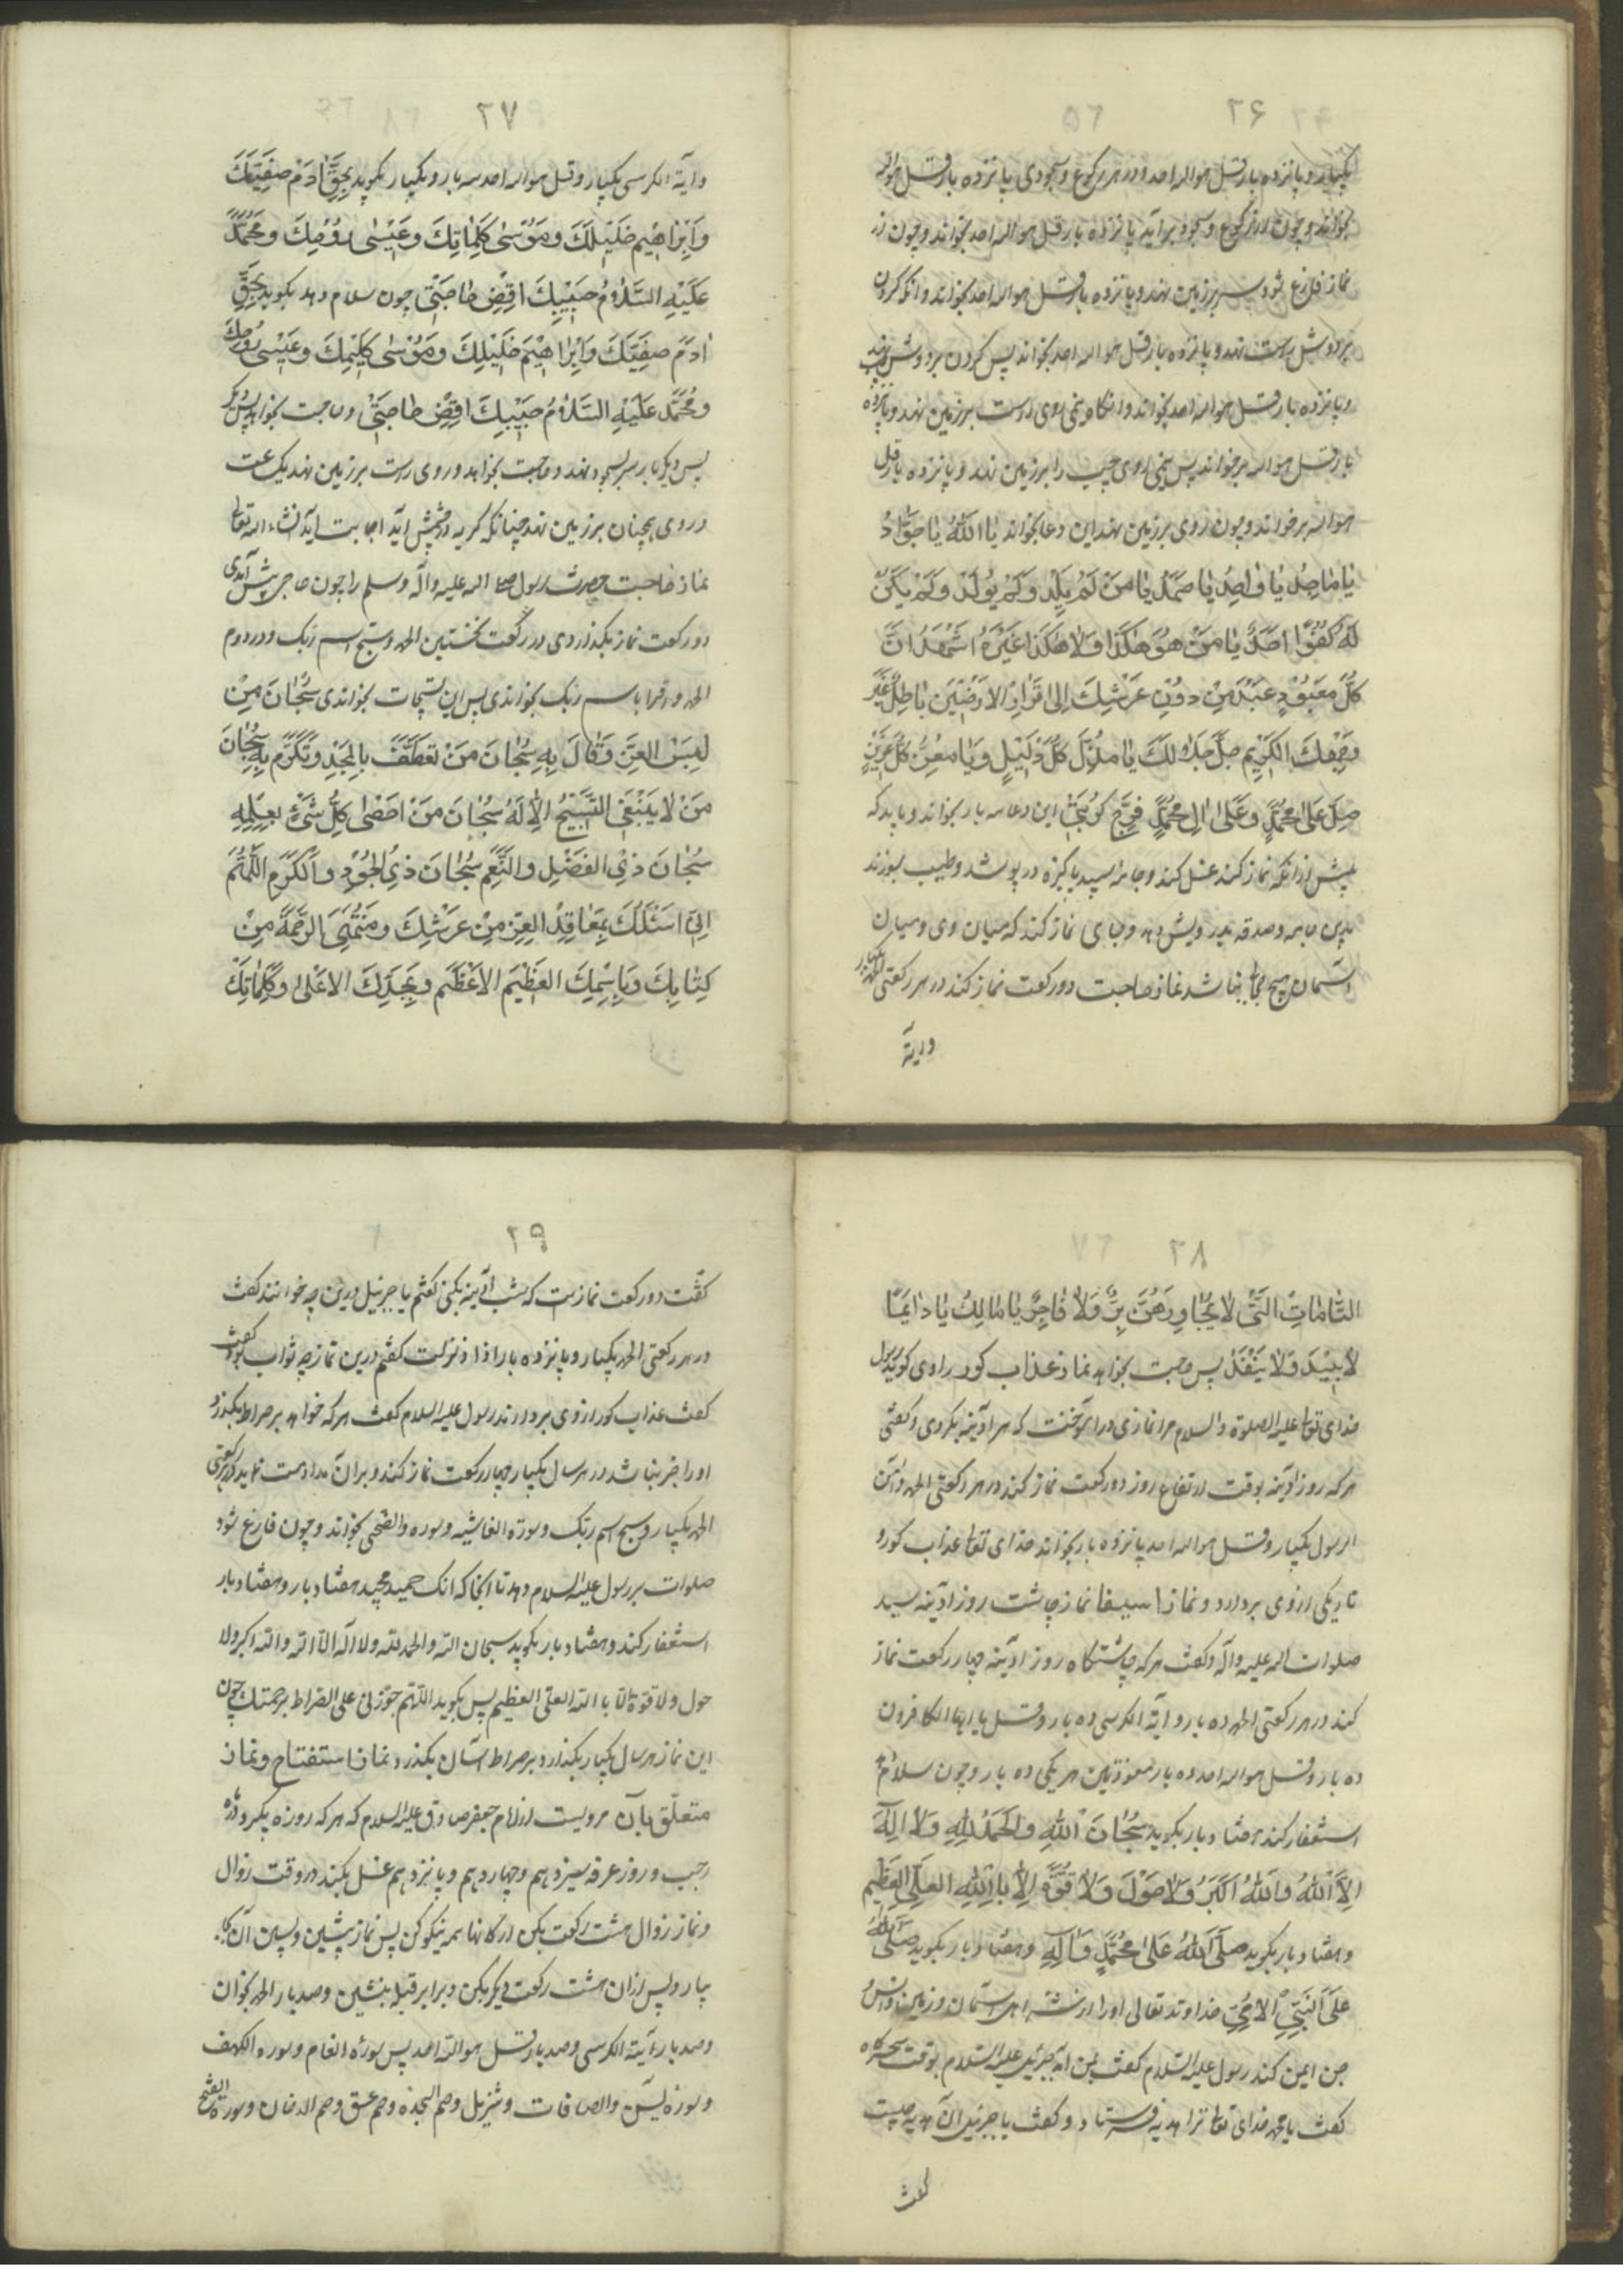 ۲۶
یکبار و پانزده بار قل هو الله احد و در هر رکوع و سجودی پانزده بار قل هو الله
بخواند و چون از رکوع و سجود برآید پانزده بار قل هو الله احد بخواند و چون از
نماز فارغ شود سر بر زمین نهد و پانزده بار قل هو الله احد بخواند و
بر دوش راست نهد و پانزده بار قل هو الله احد بخواند پس گردن بر دوش چپ نهد
و پانزده بار قل هو الله احد بخواند و آنگاه نیمی روی راست بر زمین نهد و پانزده
بار قل هو الله بر خواند پس نیمی روی چپ را بر زمین نهد و پانزده بار قل
هو الله بر خواند و چون روی بر زمین نهد این دعا بخواند یَا اَللّٰهُ یَا جَوَّادُ
یَا مَاجِدُ یَا وَاحِدُ یَا صَمَدُ یَا مَنْ لَمْ یَلِدْ وَلَمْ یُولَدْ وَلَمْ یَکُنْ
لَهُ کُفُوًا اَحَدٌ یَا مَنْ هُوَ هٰکَذَا وَلَا هٰکَذَا غَیْرُهُ اَشْهَدُ اَنَّ
کُلَّ مَعْبُوْدٍ عَبْدٍ مِنْ دُوْنِ عَرْشِكَ اِلٰی قَرَارِ الْاَرَضِیْنَ بَاطِلٌ غَیْرَ
وَجْهِكَ الْکَرِیْمِ جَلَّ جَلَالُكَ یَا مُذِلَّ کُلِّ ذَلِیْلٍ وَیَا مُعِزَّ کُلِّ عَزِیْزٍ
صَلِّ عَلٰی مُحَمَّدٍ وَعَلٰی اٰلِ مُحَمَّدٍ فَرِّجْ کُرْبَتِیْ این دعا سه بار بخواند و باید که
پیش از آنکه نماز کند غسل کند و جامه سپید پاکیزه در پوشد و طیب بسوزند
بدین جامه و صدقه بدرویش دهد و جای نماز کند که میان وی و میان
آسمان هیچ نباشد نماز حاجت دو رکعت نماز کند در هر رکعتی الحمد یکبار
و آیة
۲۷
و آیة الکرسی یکبار و قل هو الله احد سه بار و یکبار بگوید بِحَقِّ اٰدَمَ صَفِیِّكَ
وَاِبْرَاهِیْمَ خَلِیْلِكَ وَمُوْسٰی کَلِمَاتِكَ وَعِیْسٰی رُوْحِكَ وَمُحَمَّدٍ
عَلَیْهِ السَّلَامُ حَبِیْبِكَ اقْضِ حَاجَتِیْ چون سلام دهد بگوید بِحَقِّ
اٰدَمَ صَفِیِّكَ وَاِبْرَاهِیْمَ خَلِیْلِكَ وَمُوْسٰی کَلِیْمِكَ وَعِیْسٰی رُوْحِكَ
وَمُحَمَّدٍ عَلَیْهِ السَّلَامُ حَبِیْبِكَ اقْضِ حَاجَتِیْ و حاجت بخواهد
پس دیگر بار سر بسجود نهد و حاجت بخواهد و روی راست بر زمین نهد یک ساعت
و روی همچنان بر زمین نهد چنانکه گریه در چشمش آید اجابت آید انشاء الله تعالی
نماز حاجت حضرت رسول صلی الله علیه و آله و سلم را چون حاجتی پیش آمدی
دو رکعت نماز بگذاردی در رکعت نخستین الحمد و سبح اسم ربک و در دوم
الحمد و اقرا باسم ربک بخواندی پس این تسبیحات بخواندی سُبْحَانَ مَنْ
لَبِسَ الْعِزَّ وَقَالَ بِهِ سُبْحَانَ مَنْ تَعَطَّفَ بِالْمَجْدِ وَتَکَرَّمَ بِهِ سُبْحَانَ
مَنْ لَا یَنْبَغِی التَّسْبِیْحُ اِلَّا لَهُ سُبْحَانَ مَنْ اَحْصٰی کُلَّ شَیْءٍ بِعِلْمِهِ
سُبْحَانَ ذِی الْفَضْلِ وَالنِّعَمِ سُبْحَانَ ذِی الْجُوْدِ وَالْکَرَمِ اَللّٰهُمَّ
اِنِّیْ اَسْئَلُكَ بِمَعَاقِدِ الْعِزِّ مِنْ عَرْشِكَ وَمُنْتَهَی الرَّحْمَةِ مِنْ
کِتَابِكَ وَبِاسْمِكَ الْعَظِیْمِ الْاَعْظَمِ وَبِجَدِّكَ الْاَعْلٰی وَکَلِمَاتِكَ
۲۸
التَّامَّاتِ الَّتِیْ لَا یُجَاوِزُهُنَّ بِرٌّ وَلَا فَاجِرٌ یَا مَالِكُ یَا دَائِمًا
لَا یَبِیْدُ وَلَا یَنْفَدُ پس حاجت بخواهد نماز عذاب کور راوی کوید رسول
خدای تعالی علیه الصلوة والسلام مرا نمازی در آموخت که هر آدینه بکردی و گفتی
هر که روز آدینه بوقت ارتفاع روز دو رکعت نماز کند در هر رکعتی الحمد و آمن
الرسول یکبار و قل هو الله احد پانزده بار بخواند خدای تعالی عذاب کور و
تاریکی از وی بردارد و نماز نماز چاشت روز آدینه سید
صلوات الله علیه و آله گفت هر که چاشتگاه روز آدینه چهار رکعت نماز
کند در هر رکعتی الحمد ده بار و آیة الکرسی ده بار و قل یا ایها الکافرون
ده بار و قل هو الله احد ده بار معوذتین هر یکی ده بار و چون سلام
استغفار کند هفتاد بار بگوید سُبْحَانَ اللّٰهِ وَالْحَمْدُ لِلّٰهِ وَلَا اِلٰهَ
اِلَّا اللّٰهُ وَاللّٰهُ اَکْبَرُ وَلَا حَوْلَ وَلَا قُوَّةَ اِلَّا بِاللّٰهِ الْعَلِیِّ الْعَظِیْمِ
و هفتاد بار بگوید صَلَّی اللّٰهُ عَلٰی مُحَمَّدٍ وَاٰلِهِ و هفتاد بار بگوید صَلَّی اللّٰهُ
عَلَی النَّبِیِّ الْاُمِّیِّ خداوند تعالی او را از اهل آسمان و زمین و انس
جن ایمن کند رسول علیه السلام گفت بمن آمد جبرئیل علیه السلام بوقت سحرگاه
گفت یا محمد خدای تعالی ترا هدیه فرستاد و گفت یا جبرئیل آن هدیه چیست
گفت
۲۹
گفت دو رکعت نمازست که شب آدینه بکنی گفتم یا جبرئیل درین چه خوانند گفت
در هر رکعتی الحمد یکبار و پانزده بار اذا زلزلت گفتم درین نماز چه ثواب بود گفت
گفت عذاب کور از وی بردارند رسول علیه السلام گفت هر که خواهد بر صراط بگذرد
او را خبر نباشد در هر سال یکبار چهار رکعت نماز کند و بر آن مداومت نماید در هر رکعتی
الحمد یکبار و سبح اسم ربک و سورة الغاشیه و سوره والضحی بخواند و چون فارغ شود
صلوات بر رسول علیه السلام دهد تا آنجا که انک حمید مجید هفتاد بار و هفتاد بار
استغفار کند و هفتاد بار بگوید سبحان الله والحمد لله ولا اله الا الله والله اکبر ولا
حول ولا قوة الا بالله العلی العظیم پس بگوید اللهم جوزنی علی الصراط برحمتک چون
این نماز هر سال یکبار بگذارد بر صراط آسان بگذرد نماز استفتاح و نماز
متعلق بآن مرویست از امام جعفر صادق علیه السلام که هر که روزه بگیرد در ماه
رجب و روز عرفه سیزدهم و چهاردهم و پانزدهم غسل بکند در وقت زوال
و نماز زوال هشت رکعت بکن ارکانها همه نیکو کن پس نماز پیشین و پسین آن بجا
بیار و پس از آن هشت رکعت دیگر بکن و برابر قبله بنشین و صد بار الحمد بخوان
و صد بار آیة الکرسی و صد بار قل هو الله احد پس سورة انعام و سوره الکهف
و سورة یس و الصافات و تنزیل و حم السجده و حم عسق و حم الدخان و سورة الفتح